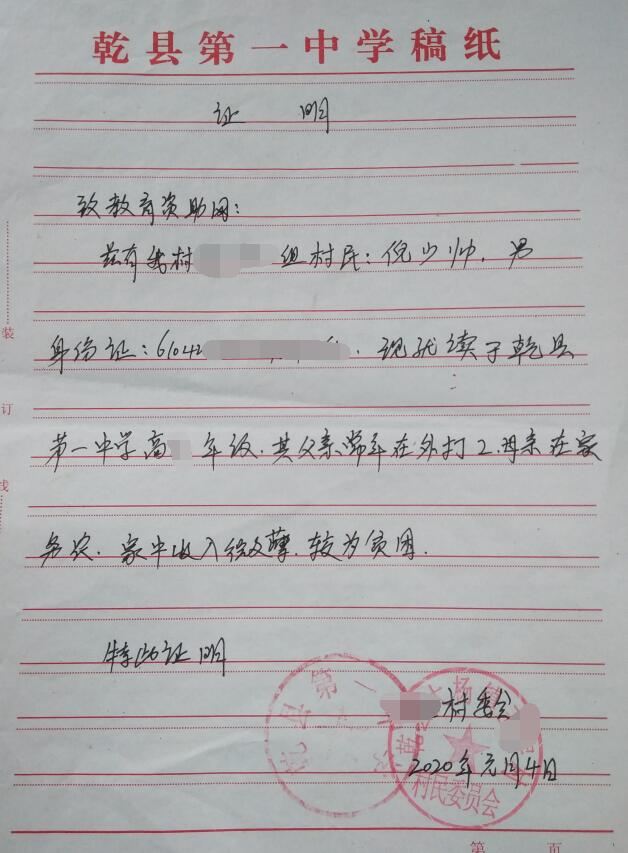 乾县第一中学稿纸
证 明
致教育资助网：
兹有我村 组村民：倪少帅，男
身份证：61042 ，现就读于乾县
第一中学高 年级，其父亲常年在外打工，母亲在家
务农，家中收入微薄，较为贫困．
特此证明
村委会
2020年元月4日
乾县第一
村民委员会
装
订
线
第 页